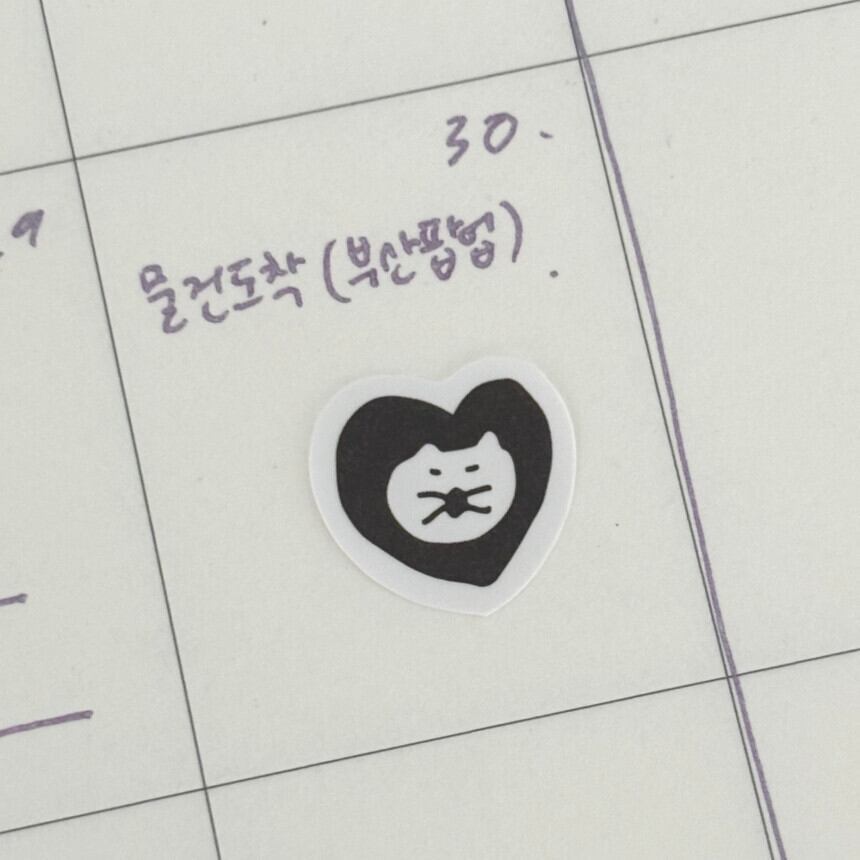 30.
.9
물건도착 (부산팝업).